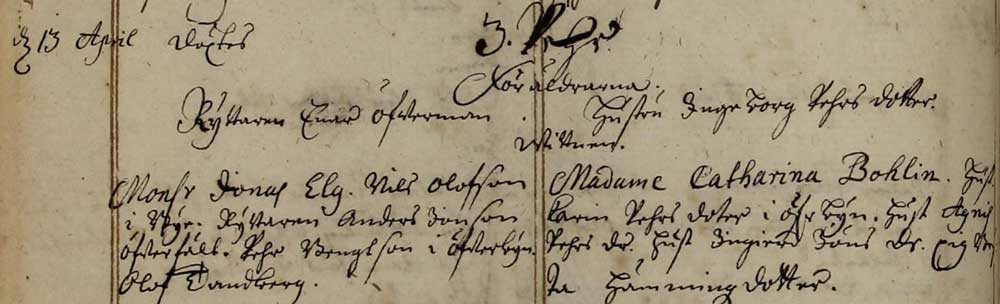 d 13 April Döptes 3. Pehr
Föräldrarna.
Ryttaren Enar Öfverman. Hustru Ingeborg Pehrs dotter.
Wittnen.
Monsr Jonas Elg. Nils Olofson
i Bye. Ryttaren Anders Jonson
Öfverfält. Pehr Bengtson i Öfverbyn.
Olof Sandberg.
Madame Catharina Bohlin. Hust
Karin Pehrs doter i Öfrbyn. Hust Agnis
Pehrs dr. Hust Ingierd Jons dr. Pig
ta Hämming dotter.